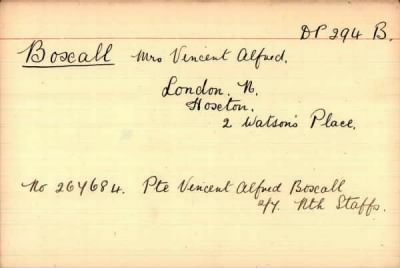 DP 294 B.
Boxall Mrs Vincent Alfred.
London. N.
Hoxton.
2 Watson's Place.
No 267684. Pte Vincent Alfred Boxall
2/7. Nth Staffs.